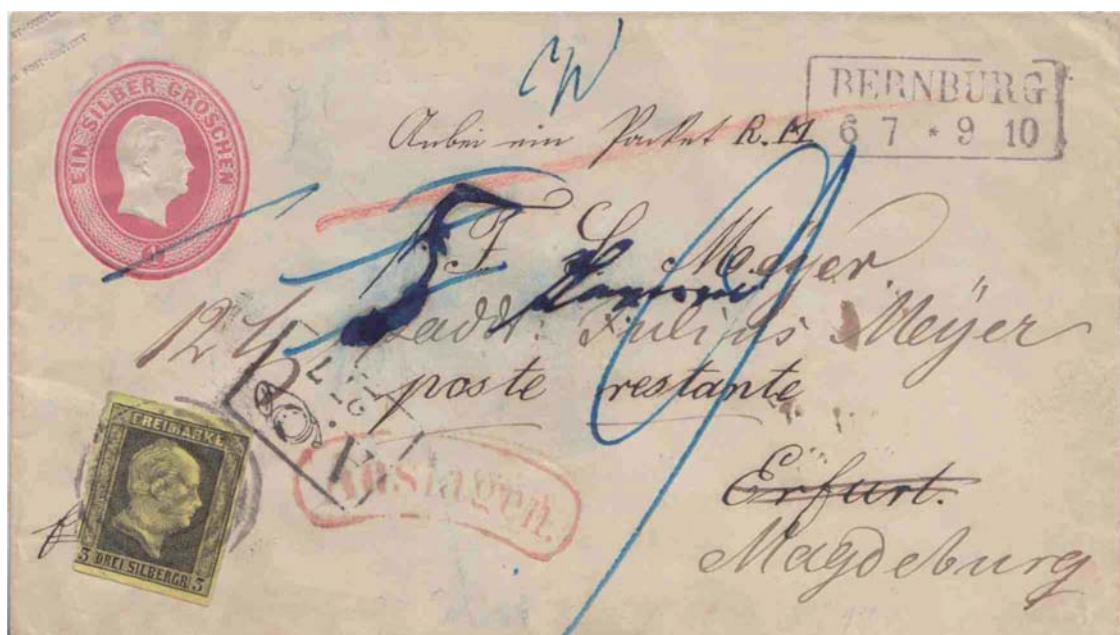 EIN SILBER GROSCHEN
BERNBURG
6 7 * 9 10
Anbei ein Packet R. M
F S Meÿer
adr: Julius Meÿer
poste restante
124
Auslagen.
Erfurt.
Magdeburg
FREIMARKE
3 DREI SILBERGR. 3